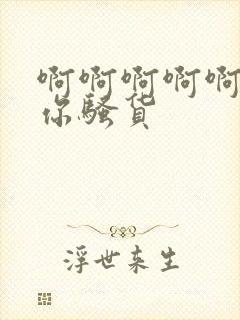 啊啊啊啊啊
你骚货
浮世来生